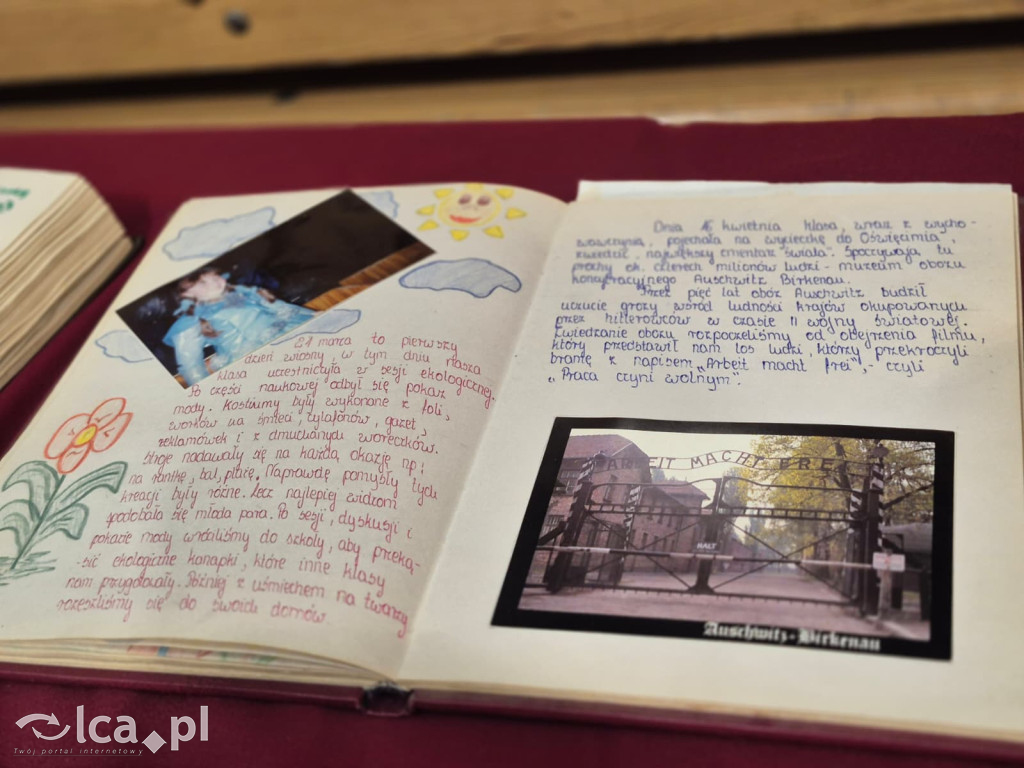 21 marca to pierwszy
dzień wiosny, w tym dniu nasza
klasa uczestniczyła w sesji ekologicznej.
Po części naukowej odbył się pokaz
mody. Kostiumy były wykonane z foli,
worków na śmieci, tylafonów, gazet,
reklamówek i z dmuchanych woreczków.
Stroje nadawały się na każdą okazję np:
na randkę, bal, plażę. Naprawdę pomysły tych
kreacji były różne. Lecz najlepiej widzom
spodobała się młoda para. Po sesji, dyskusji i
pokazie mody wróciliśmy do szkoły, aby przeką-
-sić ekologiczne kanapki, które inne klasy
nam przygotowały. Później z uśmiechem na twarzy
rozeszliśmy się do swoich domów
Dnia 16 kwietnia klasa, wraz z wycho-
wawczynią, pojechała na wycieczkę do Oświęcimia,
zwiedzić „największy cmentarz świata". Spoczywają tu
prochy ok. czterech milionów ludzi - muzeum obozu
koncentracyjnego Auschwitz Birkenau.
Przez pięć lat obóz Auschwitz budził
uczucie grozy wśród ludności krajów okupowanych
przez hitlerowców w czasie II wojny światowej.
Zwiedzanie obozu rozpoczeliśmy od obejrzenia filmu,
który przedstawił nam los ludzi, którzy przekroczyli
bramę z napisem „Arbeit macht frei", - czyli
„Praca czyni wolnym".
ARBEIT MACHT FREI
HALT
Auschwitz-Birkenau
lca.pl
Twój portal internetowy